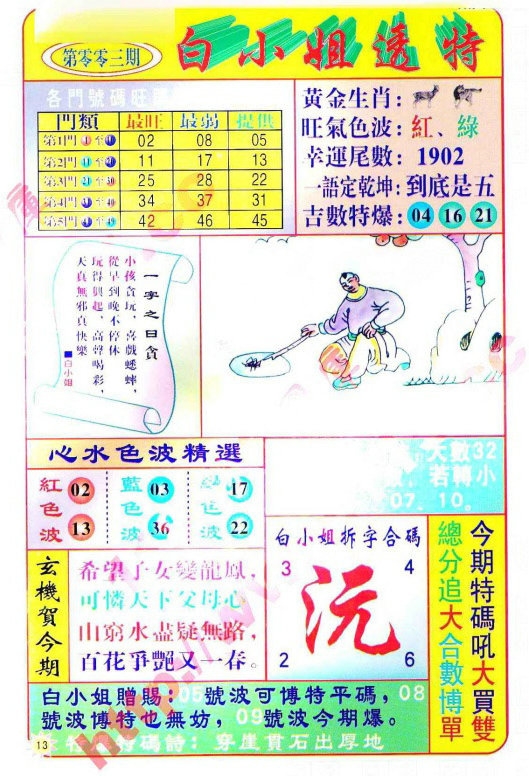 第零零三期
白小姐透特
各門號碼旺
門類 最旺 最弱 提供
第1門 1 至 02 08 05
第2門 11 至 11 17 13
第3門 21 至 30 25 28 22
第4門 31 至 34 37 31
第5門 41 至 49 42 46 45
黃金生肖：
旺氣色波：紅、綠
幸運尾數：1902
一語定乾坤：到底是五
吉數特爆：04 16 21
一字之曰貪
小孩貪玩，喜戲蟋蟀，
從早到晚不停休
玩得興起，高聲喝彩，
天真無邪真快樂
■白小姐
心水色波精選
紅色波 02 13
藍色波 03 36
17 22
大數32
若轉小
07.10。
白小姐拆字合碼
3 4
沅
2 6
今期特碼吼大買雙
總分追大合數博單
玄機賀今期
希望子女變龍鳳，
可憐天下父母心
山窮水盡疑無路，
百花爭艷又一春。
白小姐贈賜：05 號波可博特平碼，08
號波博特也無妨，09號波今期爆。
特碼詩：穿崖貫石出厚地
13